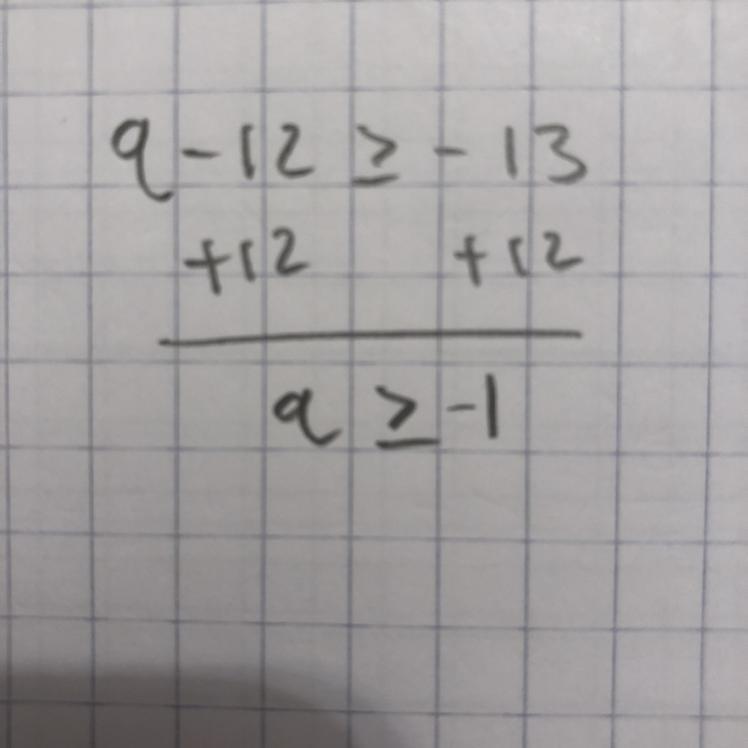 q - 12 ≥ - 13
+12 +12
a ≥ -1